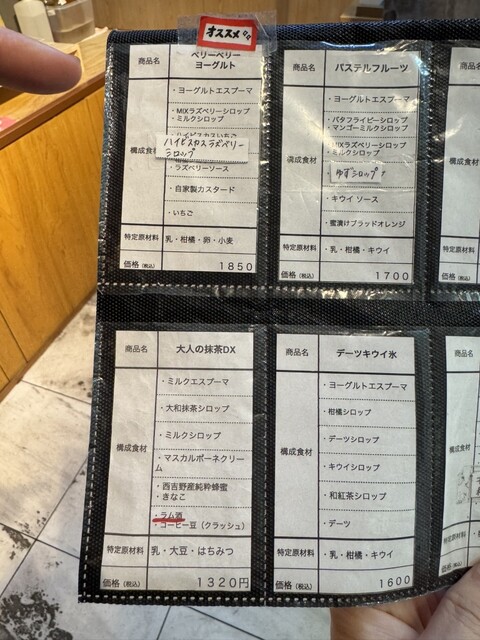 オススメ
商品名
ベリーベリー
ヨーグルト
構成食材
・ヨーグルトエスプーマ
・MIXラズベリーシロップ
・ミルクシロップ
ハイビスカスラズベリー
シロップ
・ラズベリーソース
・自家製カスタード
・いちご
特定原材料
乳・柑橘・卵・小麦
価格(税込)
1850
商品名
パステルフルーツ
構成食材
・ヨーグルトエスプーマ
・バタフライピーシロップ
・マンゴーミルクシロップ
・MIXラズベリーシロップ
・ミルクシロップ
ゆずシロップ
・キウイ ソース
・蜜漬けブラッドオレンジ
特定原材料
乳・柑橘・キウイ
価格(税込)
1700
商品名
大人の抹茶DX
構成食材
・ミルクエスプーマ
・大和抹茶シロップ
・ミルクシロップ
・マスカルポーネクリー
ム
・西吉野産純粋蜂蜜
・きなこ
・ラム酒
・コーヒー豆（クラッシュ）
特定原材料
乳・大豆・はちみつ
価格(税込)
1320円
商品名
デーツキウイ氷
構成食材
・ヨーグルトエスプーマ
・柑橘シロップ
・デーツシロップ
・キウイシロップ
・和紅茶シロップ
・デーツ
特定原材料
・乳・柑橘・キウイ
価格(税込)
1600